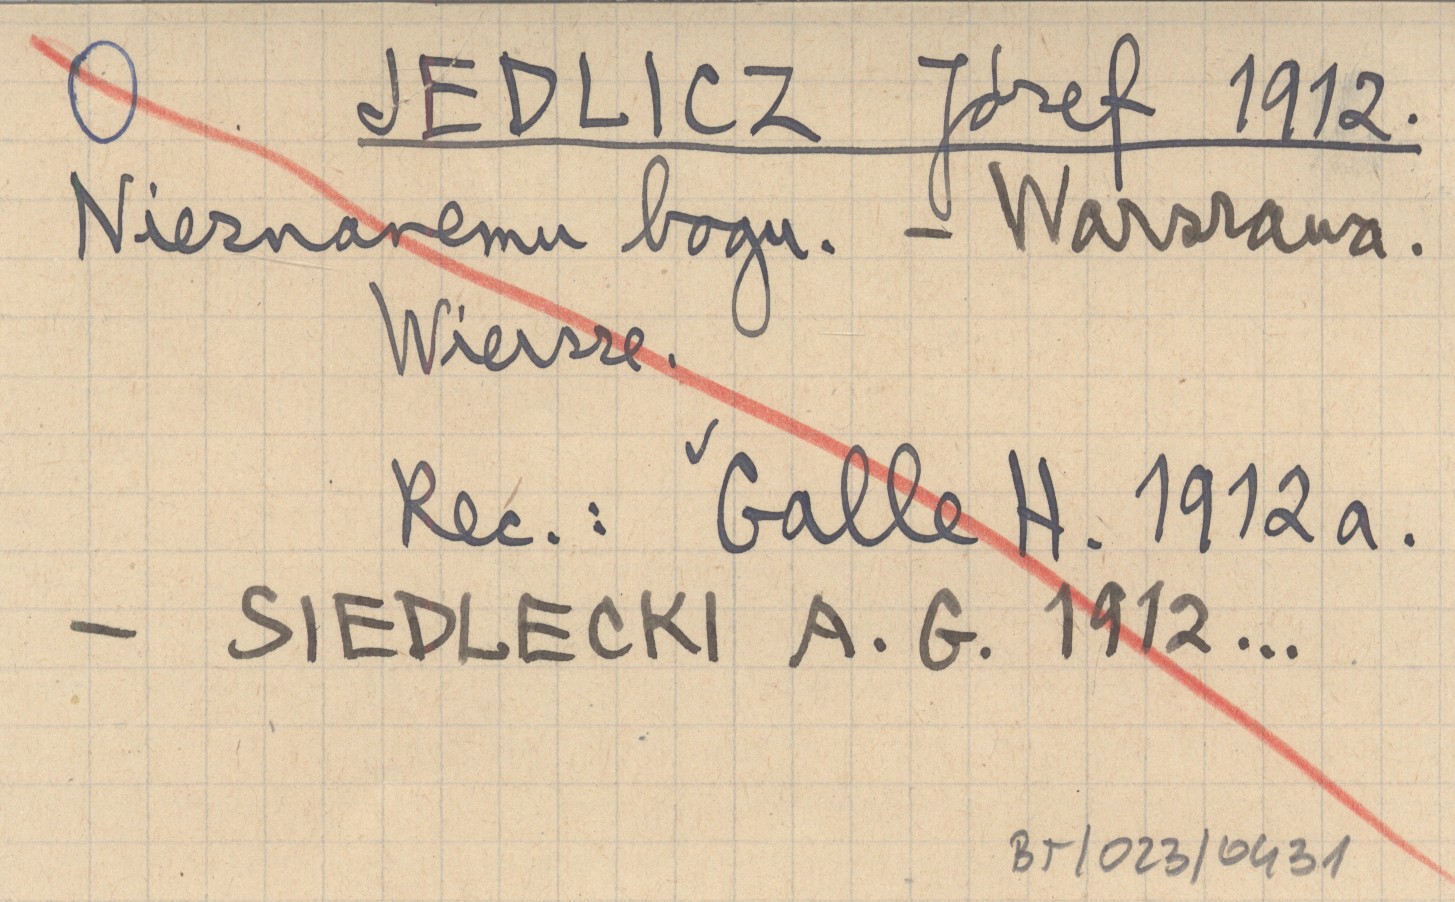 O JEDLICZ Józef 1912.
Nieznanemu bogu. – Warszawa.
Wiersze.
Rec.: ✓ Galle H. 1912 a.
– SIEDLECKI A. G. 1912...
BT/023/0431